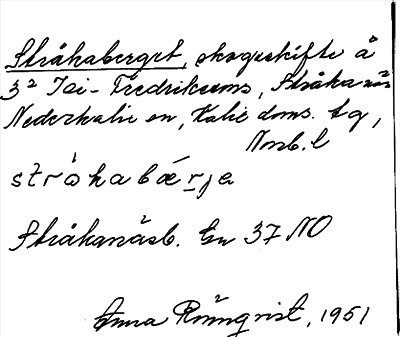 Stråkaberget, skogsskifte å
3² Tei-Fredriksems, Stråkanäs
Nederkalix sn, Kalix doms. tg,
Norrb. l
stråkabærje
Stråkanäsb. Gn 37 NO
Anna Rönnqvist, 1951